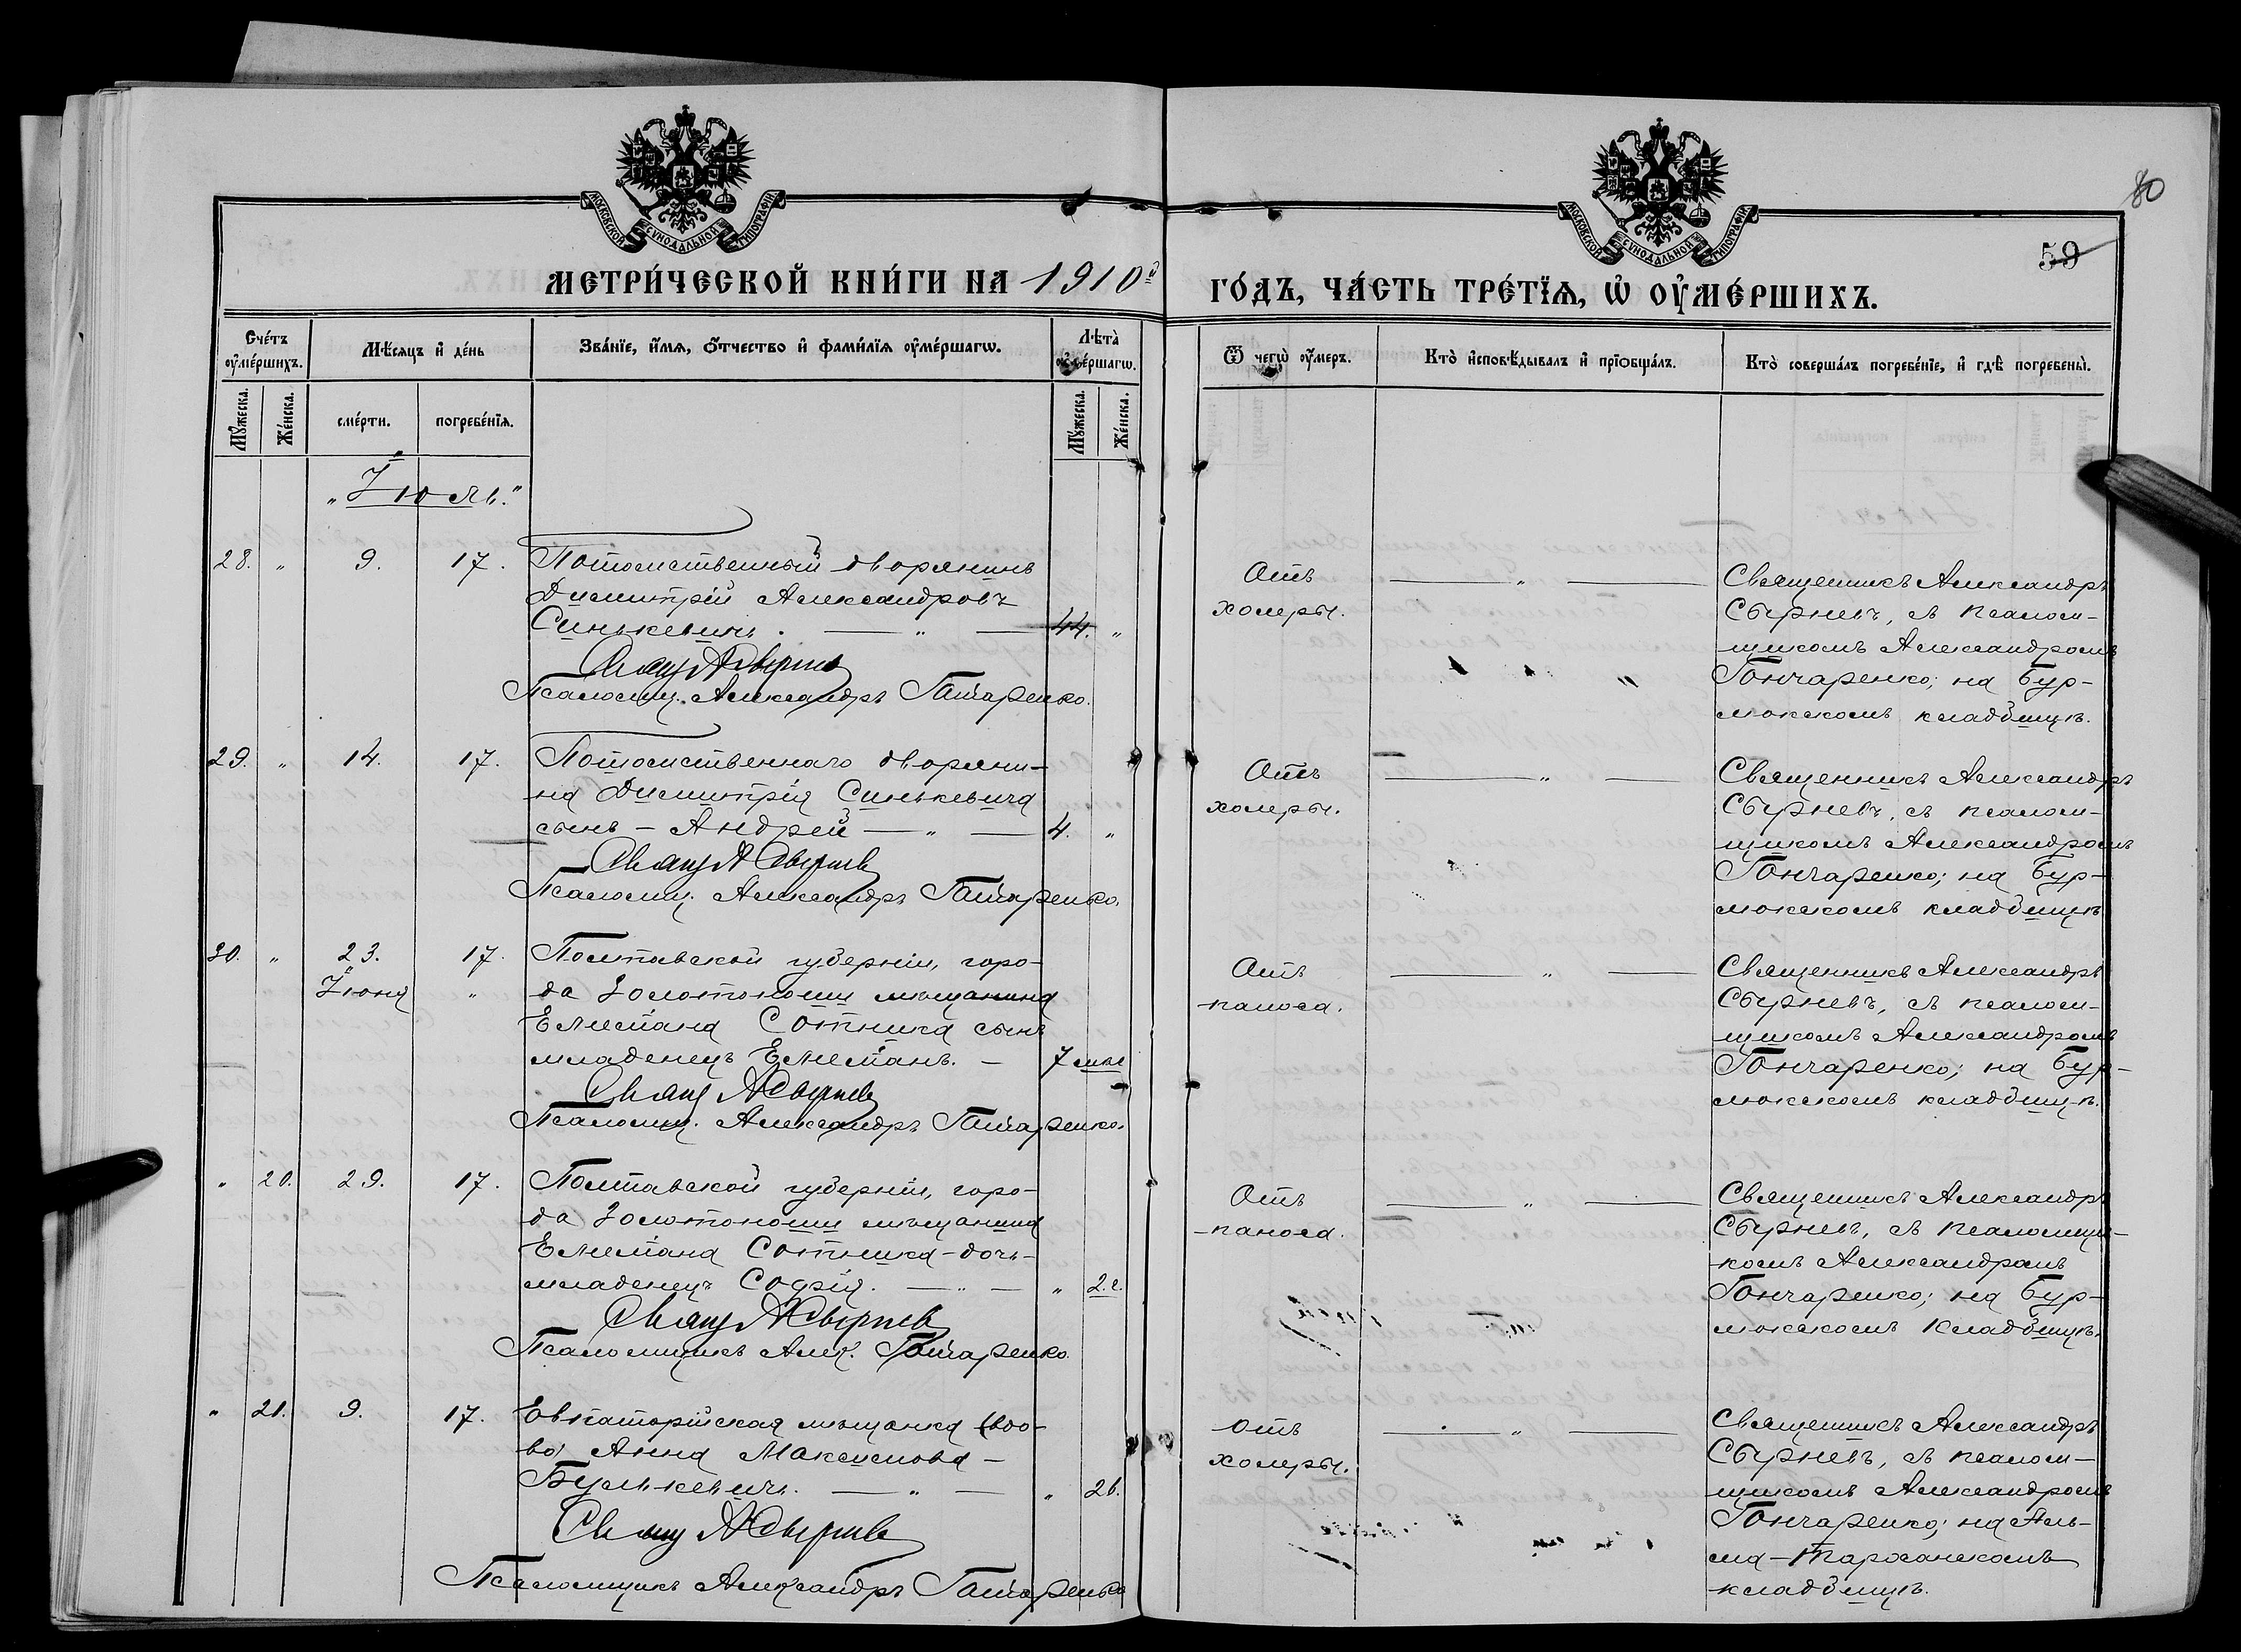 80
59
МОСКОВСКОЙ СѴНОДАЛЬНОЙ ТИПОГРАФІИ
МОСКОВСКОЙ СѴНОДАЛЬНОЙ ТИПОГРАФІИ
МЕТРИ́ЧЕСКОЙ КНИ́ГИ НА 1910й
ГО́ДЪ, ЧА́СТЬ ТРЕ́ТЇѦ, Ѡ҆ ОУ҆МЕ́РШИХЪ.
Сче́тъ оу҆ме́ршихъ.
Мѣ́сяцъ и҆ де́нь
Зва́нїе, и҆́мѧ, ѻ҆́тчество и҆ фами́лїѧ оу҆ме́ршагѡ.
Лѣ̑та̀ оу҆ме́ршагѡ.
Ѿ чегѡ̀ оу҆́меръ.
Кто̀ и҆сповѣ́дывалъ и҆ прїѡбща́лъ.
Кто̀ соверша́лъ погребе́нїе, и҆ гдѣ̀ погребены̀.
Мꙋ́жеска.
Же́нска.
сме́рти.
погребе́нїѧ.
Мꙋ́жеска.
Же́нска.
„Іюль.“
28. „ 9. 17. Потомственный дворянинъ
Димитрій Александровъ
Синькевичъ. — „ — 44. „
Свящ А Сырневъ
Псаломщ. Александръ Гончаренко.
Отъ
холеры.
— „ —
Священникъ Александръ
Сырневъ, съ псалом-
щикомъ Александромъ
Гончаренко; на Бур-
люкскомъ кладбищѣ.
29. „ 14. 17. Потомственнаго дворяни-
на Димитрія Синькевича
сынъ – Андрей — „ — 4. „
Свящ А Сырневъ
Псаломщ. Александръ Гончаренко.
Отъ
холеры.
— „ —
Священникъ Александръ
Сырневъ, съ псалом-
щикомъ Александромъ
Гончаренко; на Бур-
люкскомъ кладбищѣ
30. „ 23. 17. Полтавской губерніи, горо-
Іюня „ да Золотоноши мѣщанина
Емеліана Сотника сынъ
младенецъ Емеліанъ. — 7 мѣс
Свящ А Сырневъ
Псаломщ. Александръ Гончаренко.
Отъ
поноса.
— „ —
Священникъ Александръ
Сырневъ, съ псалом-
щикомъ Александромъ
Гончаренко; на Бур-
люкскомъ кладбищѣ.
„ 20. 29. 17. Полтавской губерніи, горо-
да Золотоноши мѣщанина
Емеліана Сотника – дочь –
младенецъ Софія. — „ — „ 2.г.
Свящ А Сырневъ
Псаломщикъ Алек. Гончаренко.
Отъ
поноса.
— „ —
Священникъ Александръ
Сырневъ, съ псаломщи-
комъ Александромъ
Гончаренко; на Бур-
люкскомъ кладбищѣ.
„ 21. 9. 17. Евпаторійская мѣщанка (вдо-
ва) Анна Максимова –
Булькевичъ. — „ — „ 26.
Свящ А Сырневъ
Псаломщикъ Александръ Гончаренко
Отъ
холеры.
— „ —
Священникъ Александръ
Сырневъ, съ псалом-
щикомъ Александромъ
Гончаренко; на Аль-
ма – Тарханскомъ
кладбищѣ.